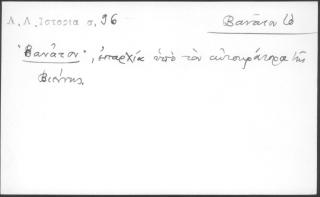 Α.Λ. Ἱστορία σ. 96
Βανᾶτον
"Βανᾶτον", ἐπαρχία ὑπὸ τὸν αὐτοκράτορα τῆς
Βιέννης.